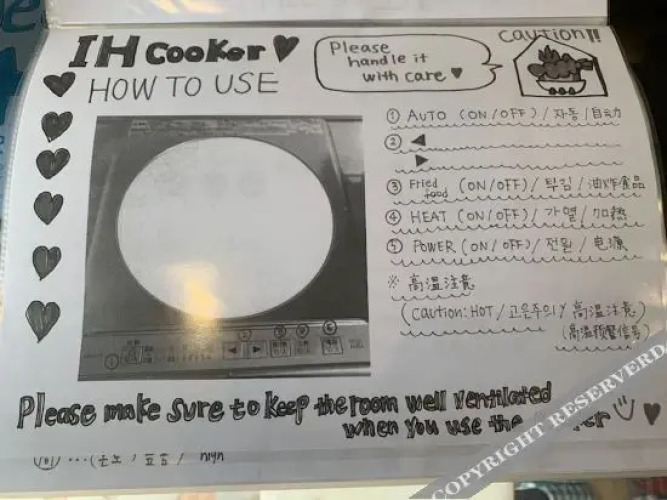 IH Cooker ♥
HOW TO USE
Please
handle it
with care ♥
caution!!
① AUTO (ON/OFF) / 자동 / 自动
② ◀
▶
③ Fried food (ON/OFF) / 튀김 / 油炸食品
④ HEAT (ON/OFF) / 가열 / 加热
⑤ POWER (ON/OFF) / 전원 / 电源
※ 高温注意
(caution: HOT / 고온주의 / 高温注意)
(高温预警信号)
Please make sure to keep the room well ventilated
when you use the
COPYRIGHT RESERVED